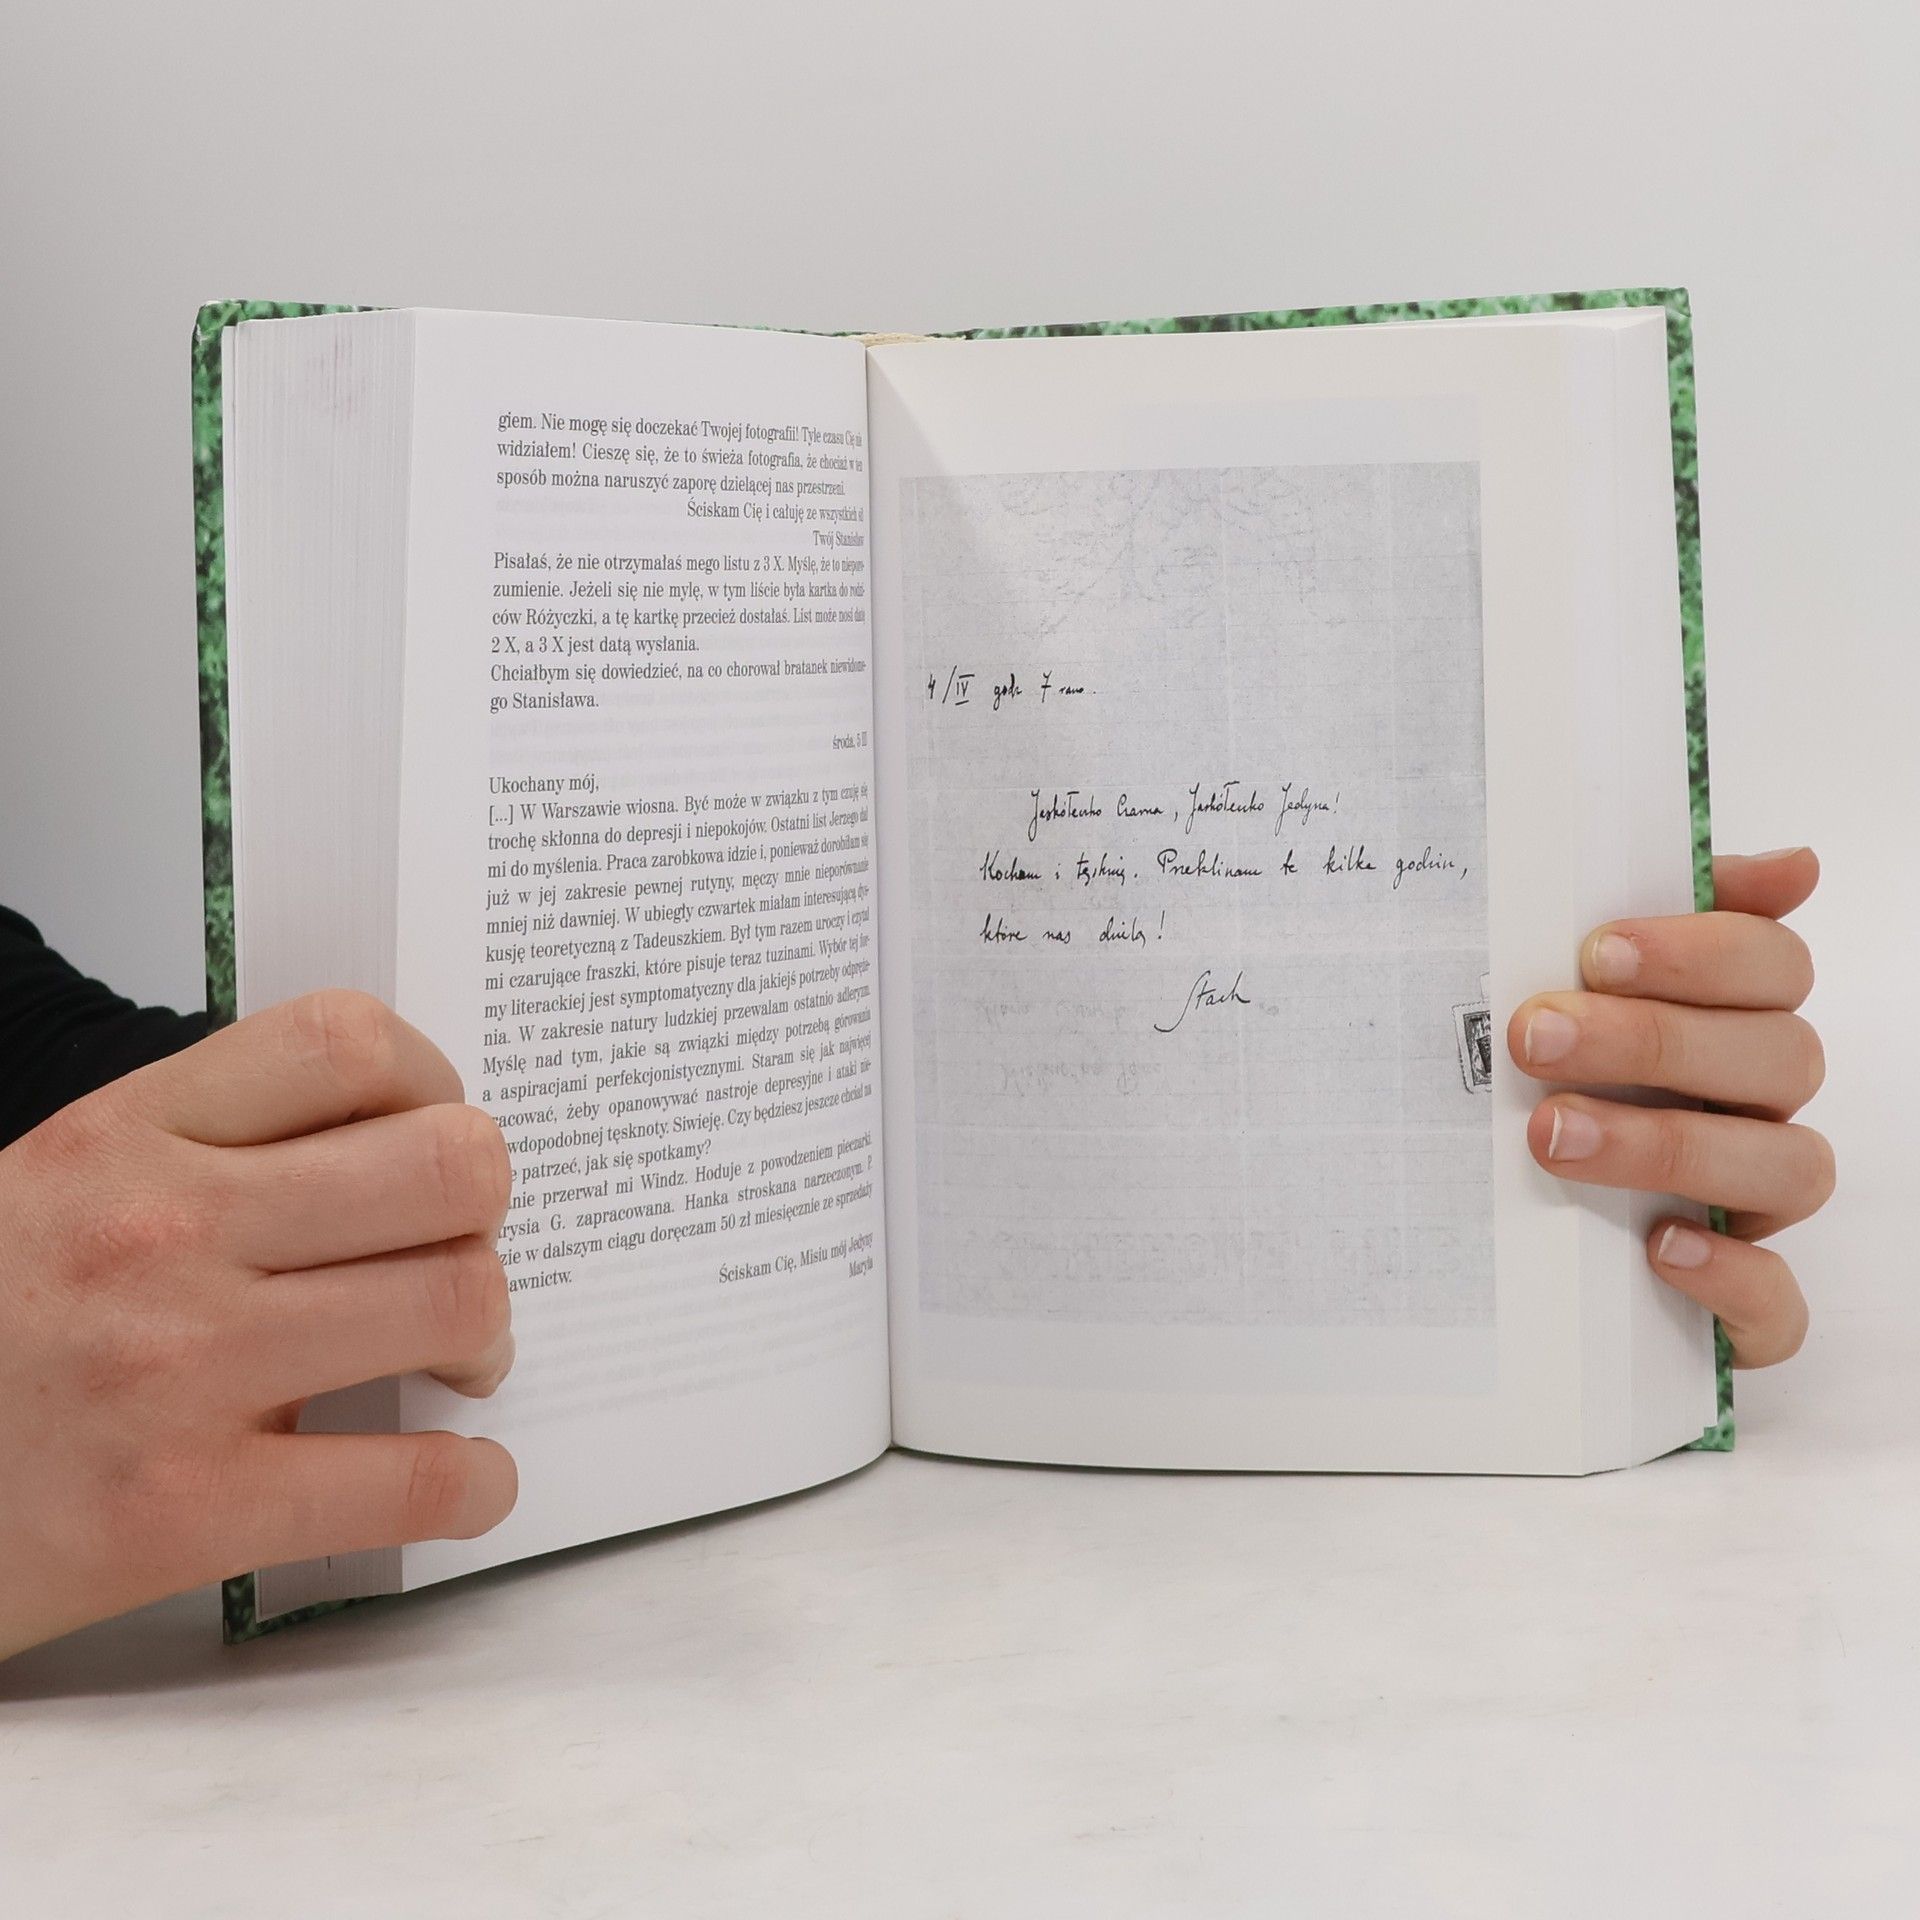 giem. Nie mogę się doczekać Twojej fotografii! Tyle czasu Cię nie
widziałem! Cieszę się, że to świeża fotografia, że chociaż w ten
sposób można naruszyć zaporę dzielącej nas przestrzeni.
Ściskam Cię i całuję ze wszystkich sił
Twój Stanisław
Pisałaś, że nie otrzymałaś mego listu z 3 X. Myślę, że to nieporo-
zumienie. Jeżeli się nie mylę, w tym liście była kartka do rodzi-
ców Różyczki, a tę kartkę przecież dostałaś. List może nosi datę
2 X, a 3 X jest datą wysłania.
Chciałbym się dowiedzieć, na co chorował bratanek niewidome-
go Stanisława.
środa, 5 III
Ukochany mój,
[...] W Warszawie wiosna. Być może w związku z tym czuję się
trochę skłonna do depresji i niepokojów. Ostatni list Jerzego dał
mi do myślenia. Praca zarobkowa idzie i, ponieważ dorobiłam się
już w jej zakresie pewnej rutyny, męczy mnie nieporównanie
mniej niż dawniej. W ubiegły czwartek miałam interesującą dys-
kusję teoretyczną z Tadeuszkiem. Był tym razem uroczy i czytał
mi czarujące fraszki, które pisuje teraz tuzinami. Wybór tej for-
my literackiej jest symptomatyczny dla jakiejś potrzeby odpręże-
nia. W zakresie natury ludzkiej przewalam ostatnio adleryzm.
Myślę nad tym, jakie są związki między potrzebą górowania
a aspiracjami perfekcjonistycznymi. Staram się jak najwięcej
racować, żeby opanowywać nastroje depresyjne i ataki nie-
wdopodobnej tęsknoty. Siwieję. Czy będziesz jeszcze chciał na
e patrzeć, jak się spotkamy?
nie przerwał mi Windz. Hoduje z powodzeniem pieczarki.
rysia G. zapracowana. Hanka stroskana narzeczonym. P.
zie w dalszym ciągu doręczam 50 zł miesięcznie ze sprzedaży
awnictw.
Ściskam Cię, Misiu mój Jedyny
Maryla
4/IV godz 7 rano.
Jaskółeczko Czarna, Jaskółeczko Jedyna!
Kocham i tęsknię. Przeklinam te kilka godzin,
które nas dzielą!
Stach